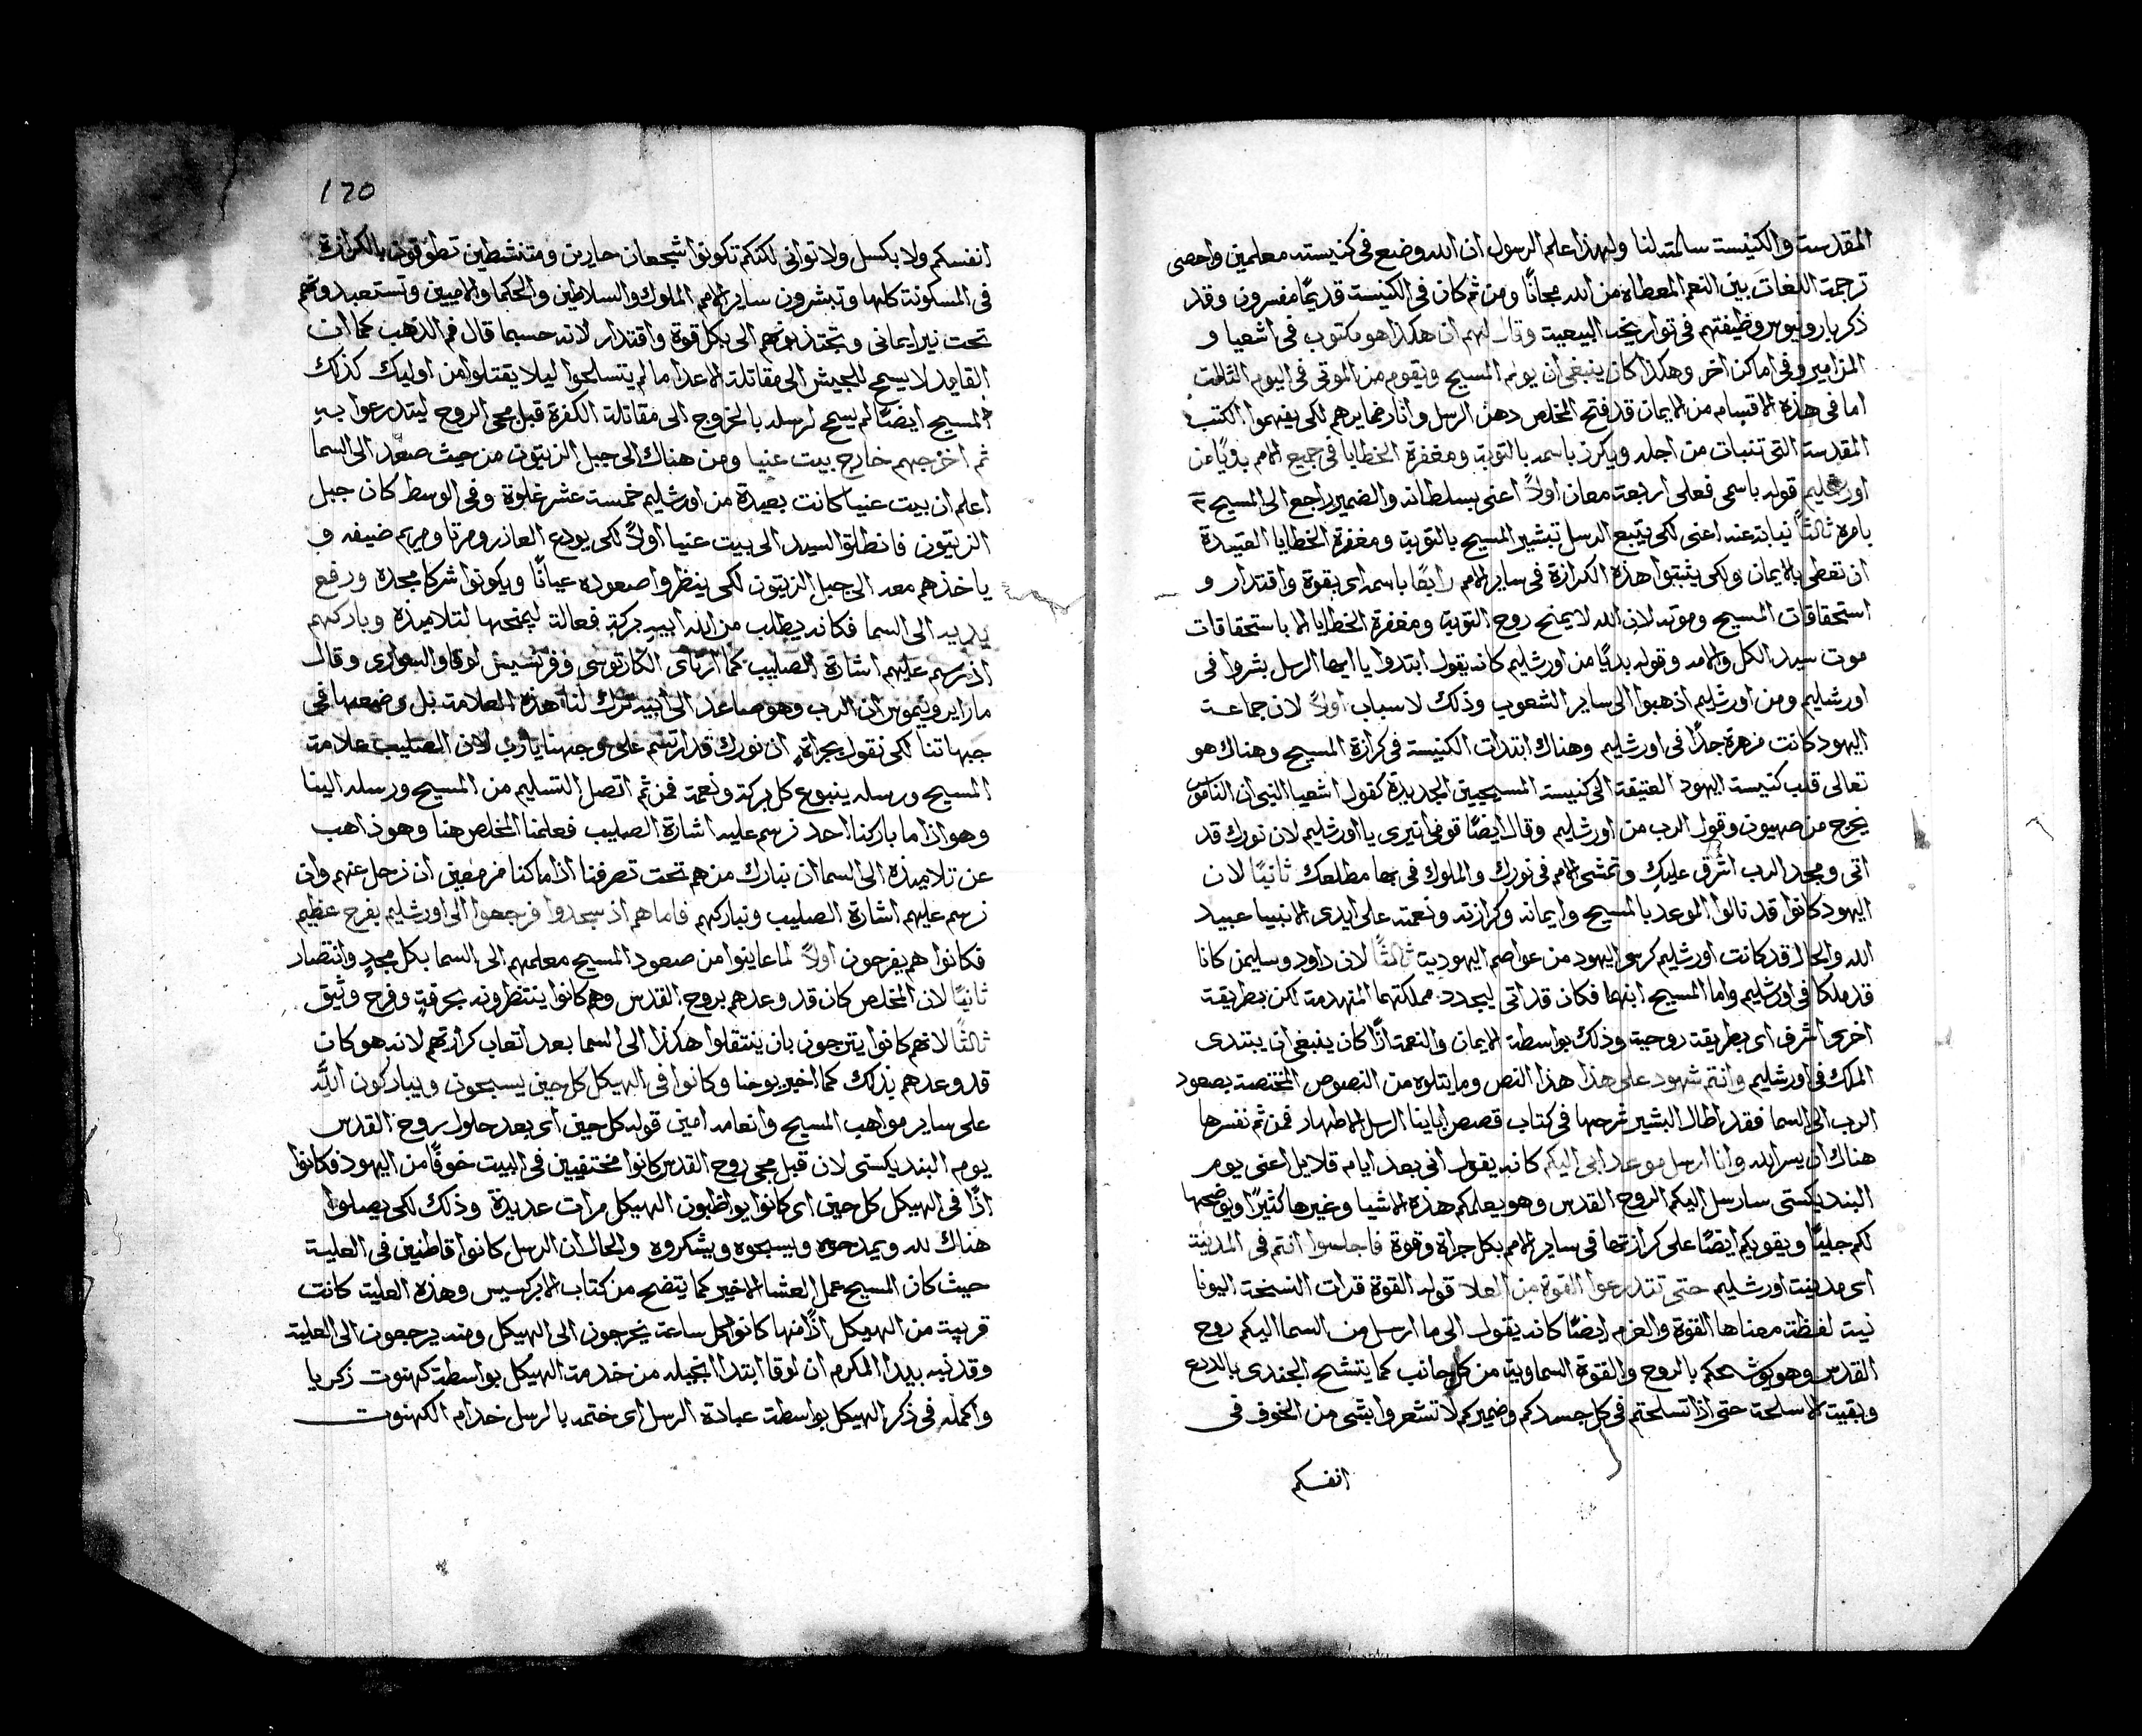 المقدسة والكنيسة سالمته لنا ولهذا علم الرسول ان الله وضع في كنيسته معلمين واحصى
ترجمة اللغات بين النعم المعطاه من الله مجانًا ومن ثم كان في الكنيسة قديمًا مفسرون وقد
ذكر بارونيوس وظيفتهم في تواريخه البيعية وقال لهم ان هكذا هو مكتوب في اشعيا و
المزامير وفي اماكن اخر وهكذا كان ينبغي ان يولم المسيح ويقوم من الموتى في اليوم الثالث
اما في هذه الاقسام من الايمان قد فتح المخلص دهن الرسل وانار ضمايرهم لكي يفهموا الكتب
المقدسة التي تنبات من اجله ويكرز باسمه بالتوبة ومغفرة الخطايا في جميع الامم بدويًا عن
اورشليم قوله باسمي فعلى اربعة معان اولاً اعني بسلطانه والضمير راجع الى المسيح
بامره ثالثًا نيابة عنه اعني لكي يتبع الرسل تبشير المسيح بالتوبة ومغفرة الخطايا العتيدة
ان تعطى بالايمان ولكي يثبتوا هذه الكرازة في ساير الامم رابعًا باسمه اى بقوة واقتدار و
استحقاقات المسيح وموته لان الله لا يمنح روح التوبة ومغفرة الخطايا الا باستحقاقات
موت سيد الكل والامه وقوله بديًا من اورشليم كانه يقول ابتدوا يا ايها الرسل بشروا في
اورشليم ومن اورشليم اذهبوا الى ساير الشعوب وذلك لاسباب اولاً لان جماعة
اليهود كانت مزهرة جدًا في اورشليم وهناك ابتدات الكنيسة في كرازة المسيح وهناك هو
تعالى قلب كنيسة اليهود العتيقة الى كنيسة المسيحيين الجديدة كقول اشعيا النبي ان الناموس
يخرج من صهيون وقول الرب من اورشليم وقال ايضًا قومي انيري يا اورشليم لان نورك قد
اتى ومجد الرب اشرق عليكِ وتمشي الامم في نورك والملوك في بها مطلعك ثانيًا لان
اليهود كانوا قد نالوا الموعد بالمسيح وايمانه وكرازته ونعمته على ايدي الانبيا عبيد
الله والحال قد كانت اورشليم كرسي اليهود من عواصم اليهودية ثالثًا لان داود وسليمن كانا
قد ملكا في اورشليم واما المسيح ابنهما فكان قد اتى ليجدد مملكتهما المنهدمة لكن بطريقة
اخرى اشرف اى بطريقة روحية وذلك بواسطة الايمان والنعمة اذًا كان ينبغي ان يبتدى
الملك في اورشليم وانتم شهود على هذا هذا النص وما يتلوه من النصوص المختصة بصعود
الرب الى السما فقد اطال البشير شرحها في كتاب قصص اباينا الرسل الاطهار فمن ثم نفسرها
هناك ان يسر الله وانا ارسل موعد ابي اليكم كانه يقول اني بعد ايام قلايل اعني يوم
البنديكستي سارسل اليكم الروح القدس وهو يعلمكم هذه الاشيا وغيرها كثيرًا ويوضحها
لكم جليًا ويقويكم ايضًا على كرازتها في ساير الامم بكل جراة وقوة فاجلسوا انتم في المدينة
اى مدينة اورشليم حتى تتدرعوا القوة من العلا قوله القوة قرات النسخة اليونا
نية لفظة معناها القوة والعزم ايضًا كانه يقول الى ما ارسل من السما اليكم روح
القدس وهو يوشحكم بالروح والقوة السماوية من كل جانب كما يتشح الجندي بالدرع
وبقية الاسلحة حتى اذا تسلحتم في كل جسدكم وضميركم لا تشعروا بشي من الخوف في
انفسكم
120
انفسكم ولا بكسل ولا تواني لكنكم تكونوا شجعان حارين ومتنشطين تطوفون بالكرازة
في المسكونة كلها وتبشرون ساير الامم الملوك والسلاطين والحكما والاميين وتستعبدوهم
تحت نير ايماني وتجتذبوهم الى بكل قوة واقتدار لانه حسبما قال فم الذهب كما ان
القايد لا يسمح للجيش الى مقاتلة الاعدا ما لم يتسلحوا ليلا يقتلوا من اوليك كذلك
المسيح ايضًا لم يسمح لرسله بالخروج الى مقاتلة الكفرة قبل مجى الروح ليتدرعوا به
ثم اخرجهم خارج بيت عنيا ومن هناك الى جبل الزيتون من حيث صعد الى السما
اعلم ان بيت عنيا كانت بعيدة من اورشليم خمسة عشر غلوة وفي الوسط كان جبل
الزيتون فانطلق السيد الى بيت عنيا اولاً لكي يودع العازر ومرتا ومريم ضيفه و
ياخذهم معه الى جبل الزيتون لكي ينظروا صعوده عيانًا ويكونوا شركا مجده ورفع
يديه الى السما فكانه يطلب من الله ابيهِ بركة فعالة ليمنحها لتلاميذه وباركهم
اذ رسم عليهم اشارة الصليب كما ارتاى الكارتوسي وفرنسيس لوقا والسوارى وقال
مار ايرونيموس ان الرب وهو صاعد الى ابيه ترك لنا هذه العلامة بل وضعها في
جبهاتنا لكي نقول بجراةٍ ان نورك قد ارتسم على وجهنا يا رب لان الصليب علامة
المسيح ورسله ينبوع كل بركة ونعمة فمن ثم اتصل التسليم من المسيح ورسله الينا
وهو اذا ما باركنا احد نرسم عليه اشارة الصليب فعلمنا المخلص هنا وهو ذاهب
عن تلاميذه الى السما ان نبارك من هم تحت تصرفنا اذا ما كنا مزمعين ان نرحل عنهم وان
نرسم عليهم اشارة الصليب ونباركهم فاما هم اذ سجدوا فرجعوا الى اورشليم بفرح عظيم
فكانوا هم يفرحون اولاً لما عاينوا من صعود المسيح معلمهم الى السما بكل مجدٍ وانتصار
ثانيًا لان المخلص كان قد وعدهم بروح القدس وهم كانوا ينتظرونه بحرقةٍ وفرح وثيق
ثالثًا لانهم كانوا يترجون بان ينتقلوا هكذا الى السما بعد اتعاب كرازتهم لانه هو كان
قد وعدهم بذلك كما اخبر يوحنا وكانوا في الهيكل كل حين يسبحون ويباركون الله
على ساير مواهب المسيح وانعامه امين قوله كل حين اى بعد حلول روح القدس
يوم البنديكستي لان قبل مجى روح القدس كانوا مختفيين في البيت خوفًا من اليهود فكانوا
اذًا في الهيكل كل حين اى كانوا يواظبون الهيكل مرات عديدة وذلك لكي يصلوا
هناك لله ويمدحوه ويسبحوه ويشكروه والحال ان الرسل كانوا قاطنين في العلية
حيث كان المسيح عمل العشا الاخير كما يتضح من كتاب الابركسيس وهذه العلية كانت
قريبة من الهيكل اذًا منها كانوا كل ساعة يخرجون الى الهيكل ومنه يرجعون الى العلية
وقد نبه بيدا المكرم ان لوقا ابتدا انجيله من خدمة الهيكل بواسطة كهنوت زكريا
واكمله في ذكر الهيكل بواسطة عبادة الرسل اى ختمه بالرسل خدام الكهنوت